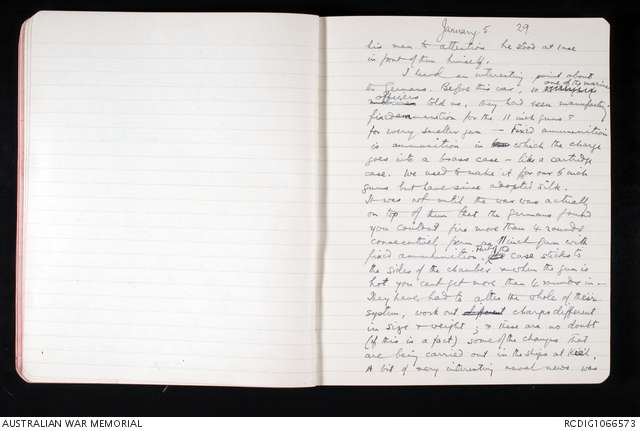 January 5 29
his men to attention he stood at once
in front of them himself.
I heard an interesting point about
the Germans. Before this war, so one of the marine
officers told us, they had been manufacturg
fixed ammunition for the 11 inch guns &
for every smaller gun — Fixed ammunition
is ammunition in which the charge
goes into a brass case — like a cartridge
case. We used to make it for our 6 inch
guns but have since adopted silk.
It was not until the war was actually
on top of them that the Germans found
you couldnt fire more than 4 rounds
consecutively from an 11 inch gun with
fixed ammunition. the case sticks to
the sides of the chamber & when the gun is
hot you cant get more than 4 rounds in —
They have had to alter the whole of their
system, work out different charges different
in size & weight; & these are no doubt
(if this is a fact) some of the changes that
are being carried out in the ships at Kiel.
A bit of very interesting naval news was
AUSTRALIAN WAR MEMORIAL
RCDIG1066573